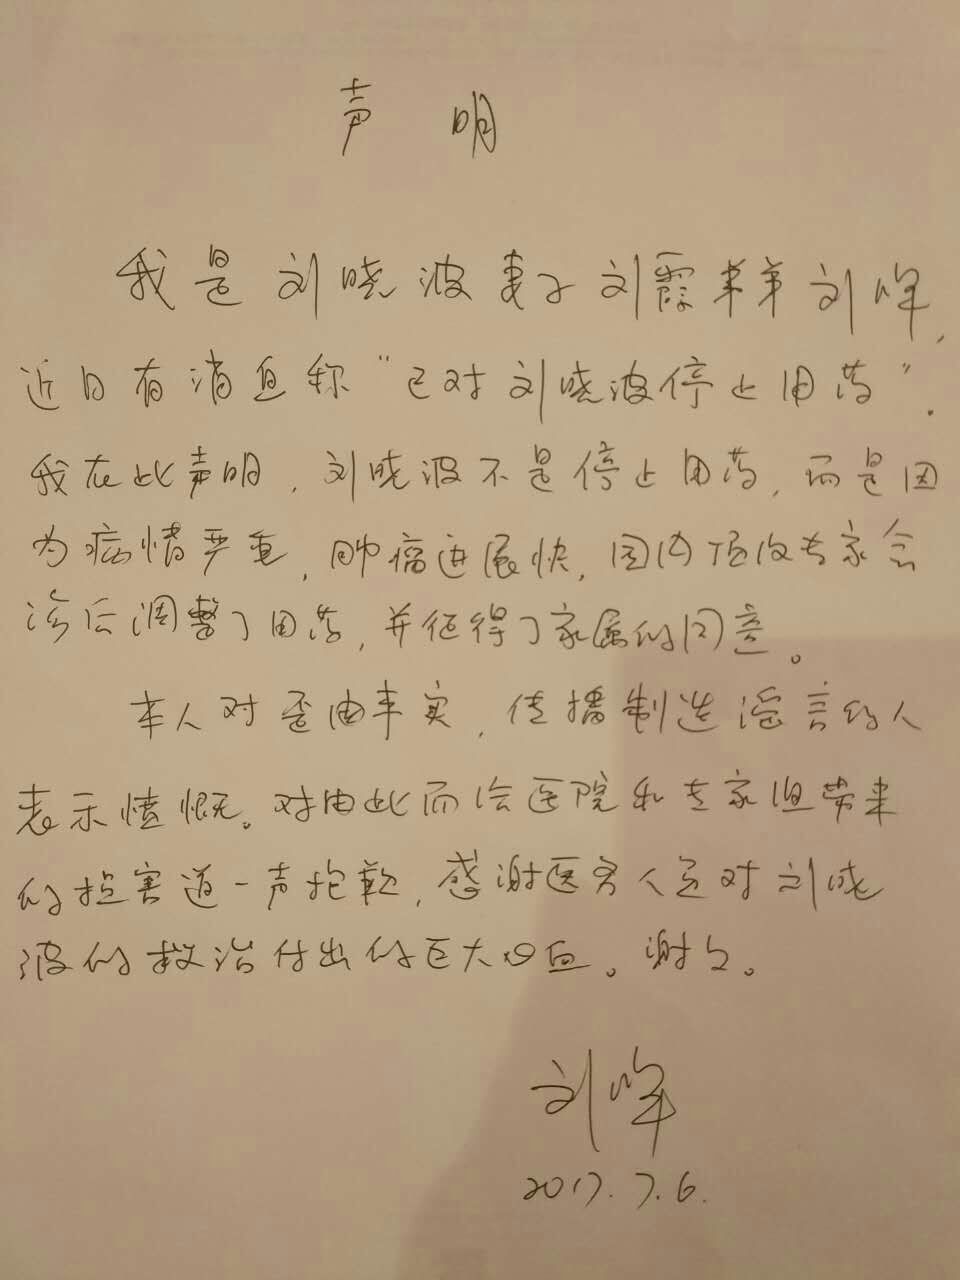 声 明
我是刘晓波妻子刘霞弟弟刘晖,
近日有消息称“已对刘晓波停止用药”.
我在此声明,刘晓波不是停止用药,而是因
为病情严重,肿瘤进展快,国内顶级专家会
诊后调整了用药,并征得了家属的同意。
本人对歪曲事实,传播制造谣言的人
表示愤慨。对由此而给医院和专家组带来
的损害道一声抱歉,感谢医务人员对刘晓
波的救治付出的巨大心血。谢々。
刘晖
2017.7.6.